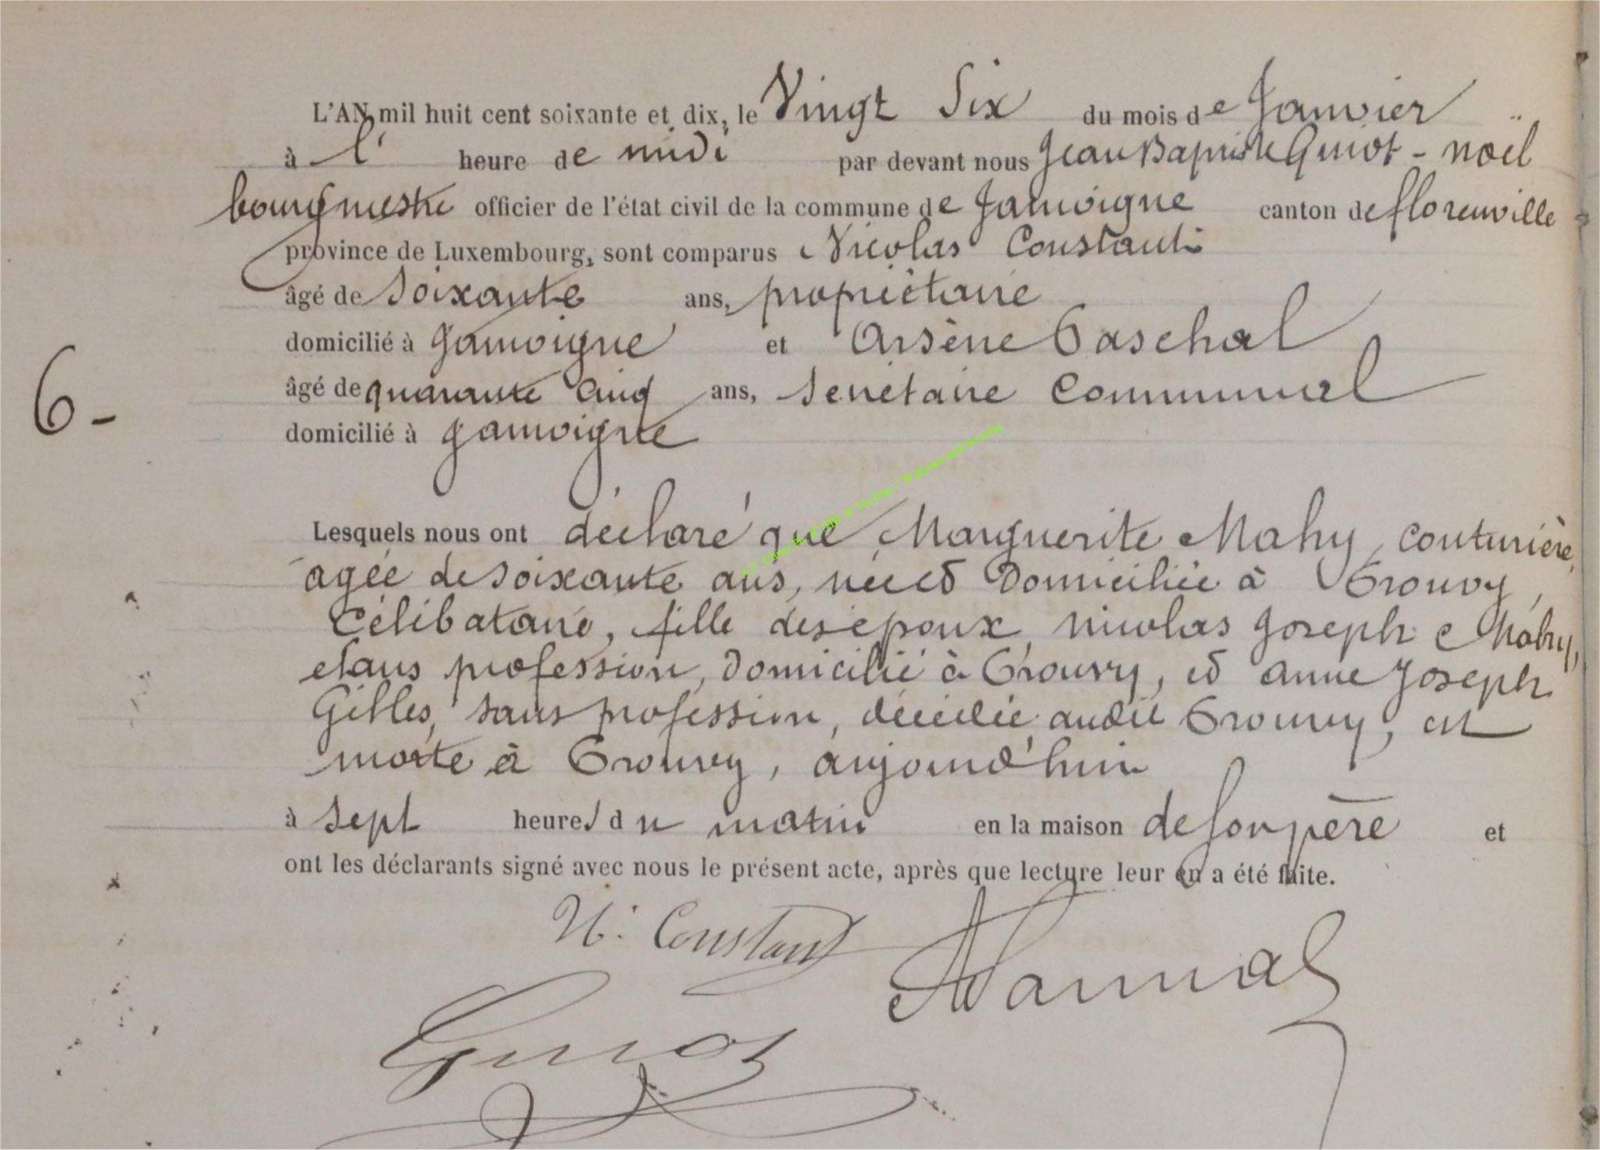 L'AN mil huit cent soixante et dix, le Vingt Six du mois de Jamvier
à l' heure de midi par devant nous Jean Baptiste Guiot - noël
bourgmestre officier de l'état civil de la commune de Jamoigne canton de florenville
province de Luxembourg, sont comparus Nicolas Constant
âgé de soixante ans, propriétaire
domicilié à Jamoigne et Arsène Paschal
âgé de quarante cinq ans, secrétaire Communal
domicilié à Jamoigne
6-
Lesquels nous ont déclaré que Marguerite Mahy, couturière,
agée de soixante ans, née et Domiciliée à Prouvy,
Célibataire, fille des époux nicolas Joseph Mahy,
sans profession, domicilié à Prouvy, et anne Joseph
Gilles, sans profession, décédée audit Prouvy, est
morte à Prouvy, aujourd'hui
à sept heures du matin en la maison de son père et
ont les déclarants signé avec nous le présent acte, après que lecture leur en a été faite.
N. Constant
Guiot